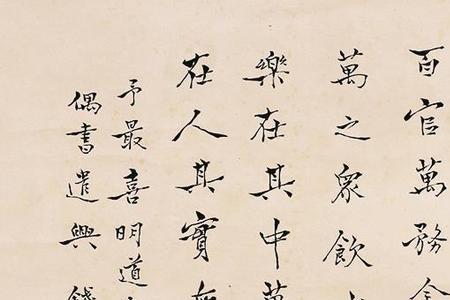 百官萬務金
萬之眾飲
樂在其中萬
在人其實無
予最喜明道
偶書遣興錢